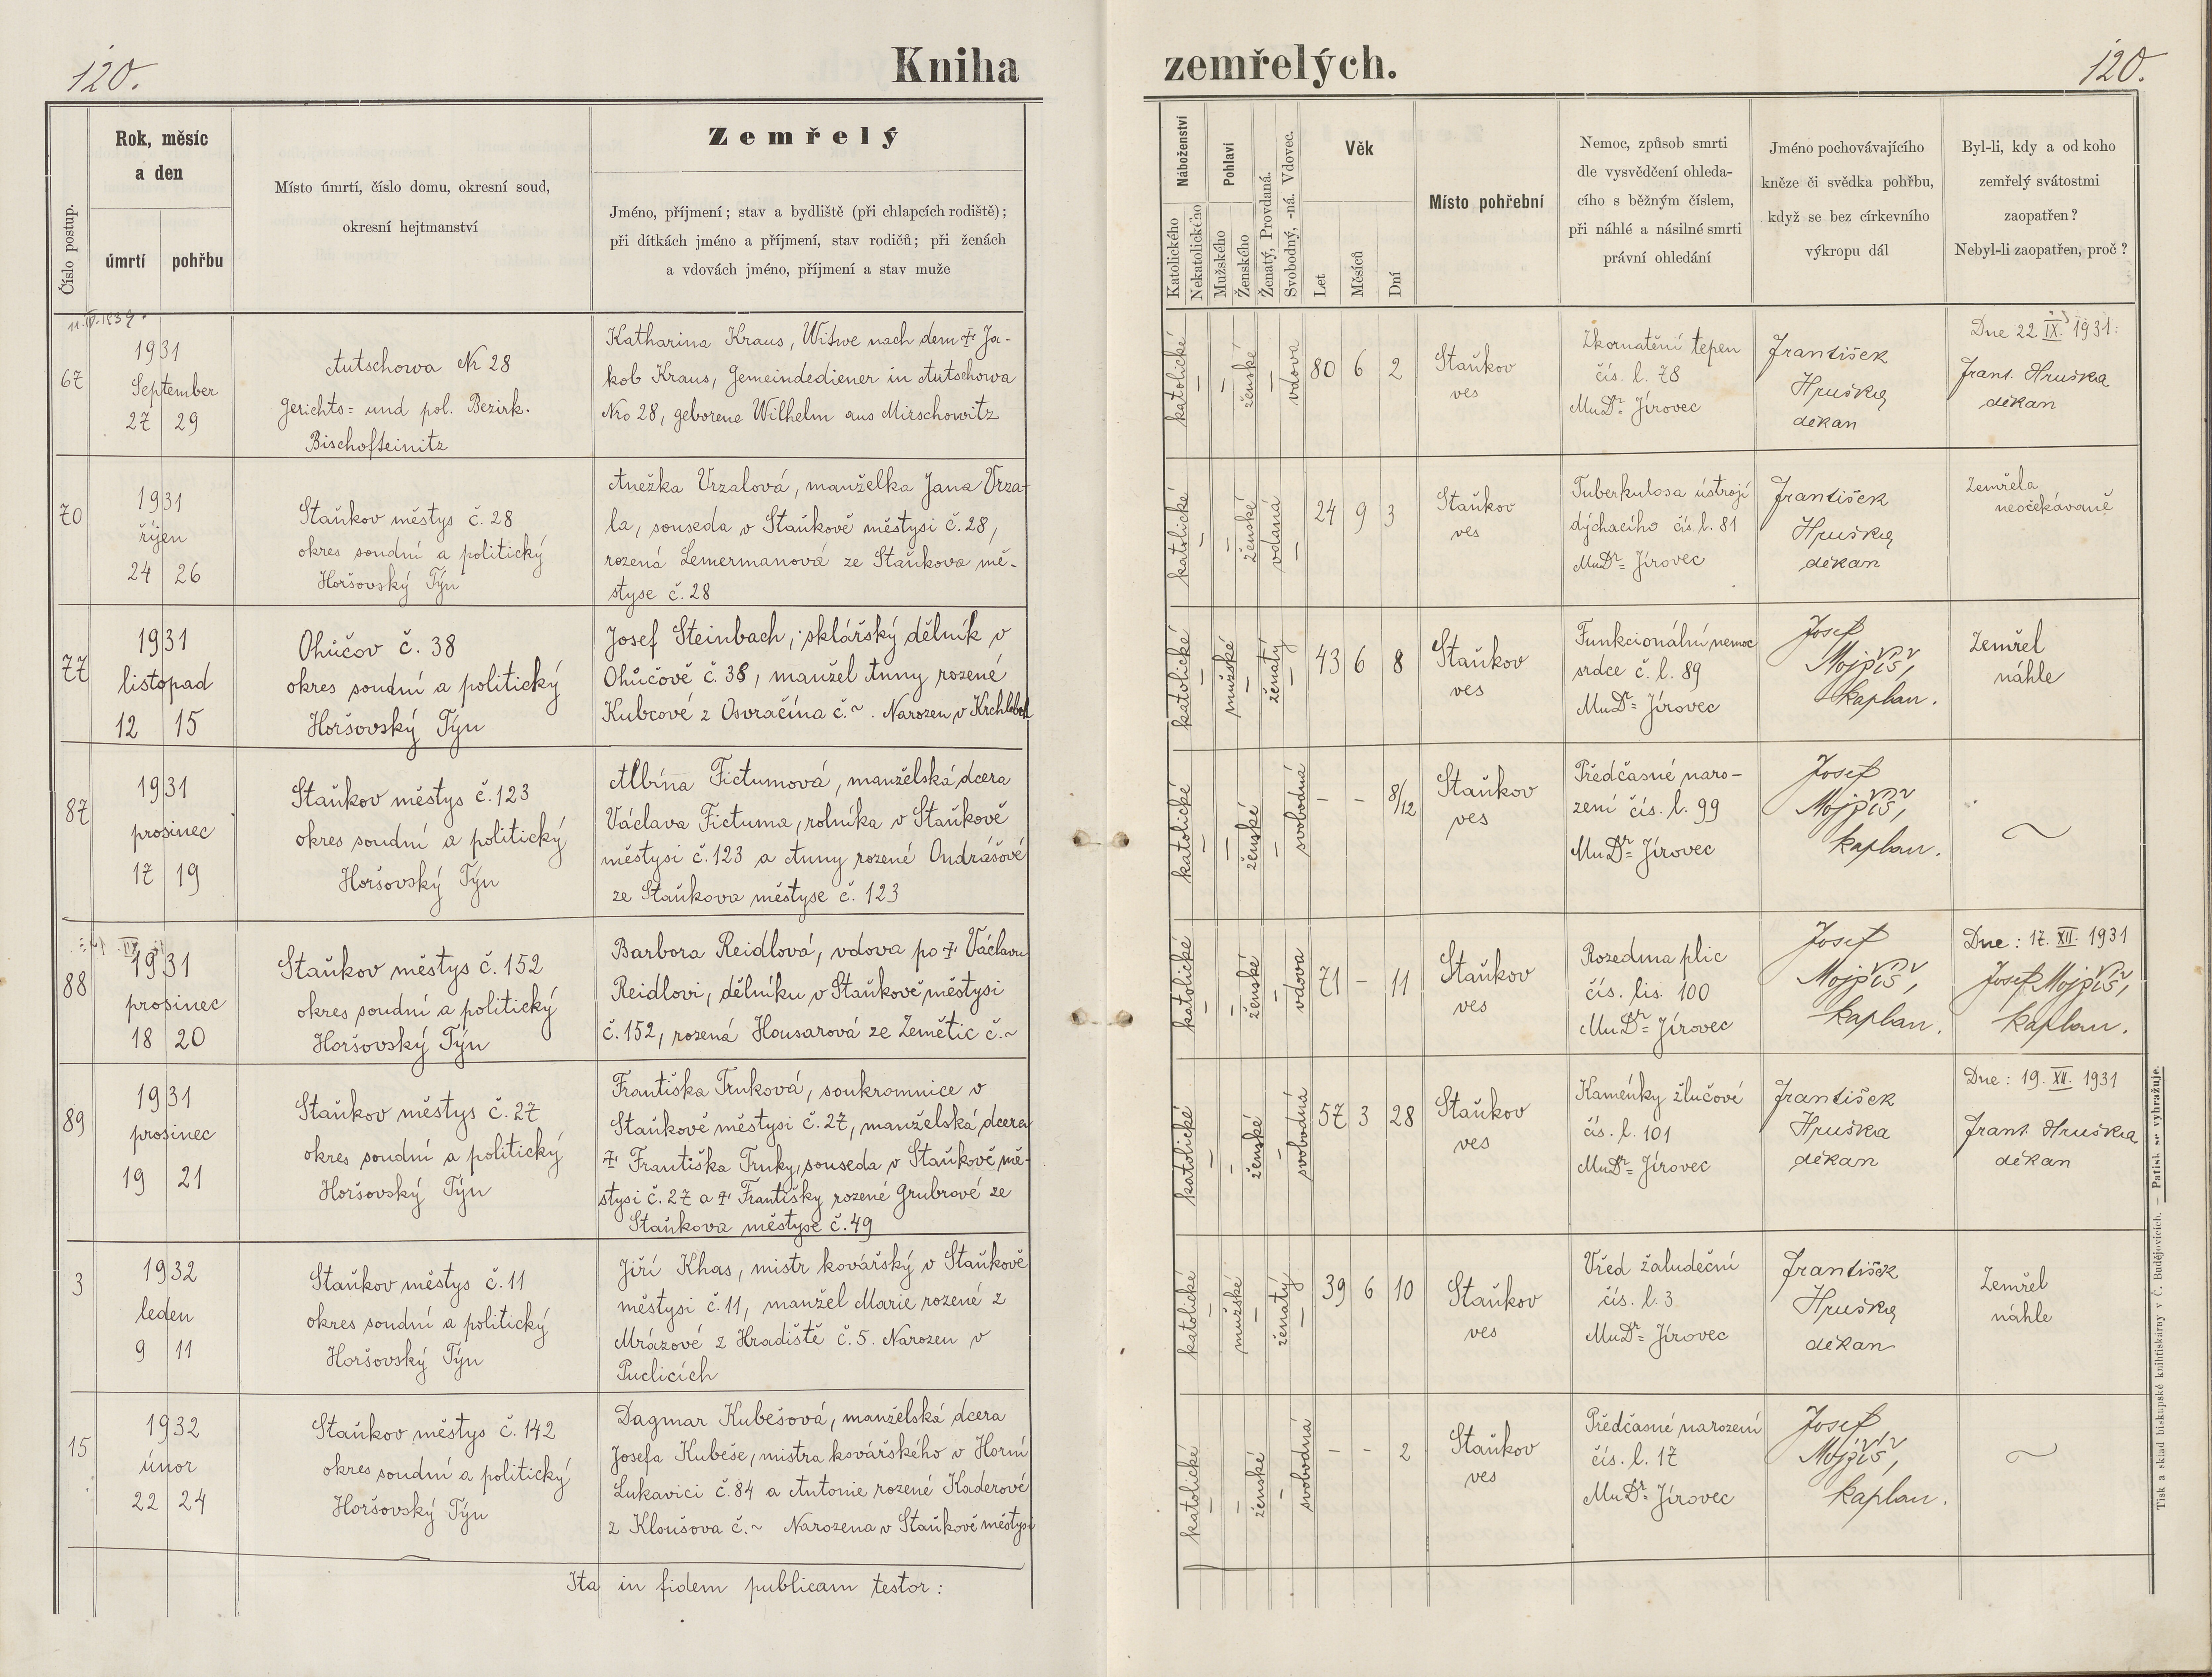 120.
Kniha
zemřelých.
120.
Číslo postup.
Rok, měsíc
a den
úmrtí
pohřbu
Místo úmrtí, číslo domu, okresní soud,
okresní hejtmanství
Zemřelý
Jméno, příjmení; stav a bydliště (při chlapcích rodiště);
při dítkách jméno a příjmení, stav rodičů; při ženách
a vdovách jméno, příjmení a stav muže
Náboženství
Katolického
Nekatolického
Pohlaví
Mužského
Ženského
Ženatý, Provdaná.
Svobodný, -ná. Vdovec.
Věk
Let
Měsíců
Dní
Místo pohřební
Nemoc, způsob smrti
dle vysvědčení ohleda-
cího s běžným číslem,
při náhlé a násilné smrti
právní ohledání
Jméno pochovávajícího
kněze či svědka pohřbu,
když se bez církevního
výkropu dál
Byl-li, kdy a od koho
zemřelý svátostmi
zaopatřen?
Nebyl-li zaopatřen, proč?
67
1931
September
27 29
Autschowa Nr 28
Gerichts= und pol. Bezirk.
Bischofteinitz
Katharina Kraus, Witwe nach dem † Ja-
kob Kraus, Gemeindediener in Autschowa
Nro 28, geborene Wilhelm aus Mirschowitz
katolické
–
–
ženské
–
vdova
80 6 2
Staňkov
ves
Zkornatění tepen
čís. l. 78
MuDr= Jírovec
František
Hruška
děkan
Dne 22 IX. 1931:
Frant. Hruška
děkan
70
1931
říjen
24 26
Staňkov městys č. 28
okres soudní a politický
Horšovský Týn
Anežka Vrzalová, manželka Jana Vrza-
la, souseda v Staňkově městysi č. 28,
rozená Lemermanová ze Staňkova mě-
styse č. 28
katolické
–
–
ženské
vdaná
–
24 9 3
Staňkov
ves
Tuberkulosa ústrojí
dýchacího čís. l. 81
MuDr= Jírovec
František
Hruška
děkan
Zemřela
neočekávaně
77
1931
listopad
12 15
Ohůčov č. 38
okres soudní a politický
Horšovský Týn
Josef Steinbach, sklářský dělník v
Ohůčově č. 38, manžel Anny rozené
Kubcové z Osvračína č. ~. Narozen v Krchleb
katolické
–
mužské
–
ženatý
–
43 6 8
Staňkov
ves
Funkcionální nemoc
srdce č. l. 89
MuDr= Jírovec
Josef
Mojpíš,
kaplan.
Zemřel
náhle
87
1931
prosinec
17 19
Staňkov městys č. 123
okres soudní a politický
Horšovský Týn
Albína Fictumová, manželská dcera
Václava Fictuma, rolníka v Staňkově
městysi č. 123 a Anny rozené Ondrášové
ze Staňkova městyse č. 123
katolické
–
–
ženské
–
svobodná
– – 8/12
Staňkov
ves
Předčasné naro-
zení čís. l. 99
MuDr= Jírovec
Josef
Mojpíš,
kaplan.
~
88
1931
prosinec
18 20
Staňkov městys č. 152
okres soudní a politický
Horšovský Týn
Barbora Reidlová, vdova po † Václavu
Reidlovi, dělníku v Staňkově městysi
č. 152, rozená Housarová ze Zemětic č. ~
katolické
–
–
ženské
–
vdova
71 – 11
Staňkov
ves
Rozedma plic
čís. lis. 100
MuDr= Jírovec
Josef
Mojpíš,
kaplan.
Dne: 17. XII. 1931
Josef Mojpíš,
kaplan.
89
1931
prosinec
19 21
Staňkov městys č. 27
okres soudní a politický
Horšovský Týn
Františka Trnková, soukromnice v
Staňkově městysi č. 27, manželská dcera
† Františka Trnky, souseda v Staňkově mě-
stysi č. 27 a † Františky rozené Grubrové ze
Staňkova městyse č. 49
katolické
–
–
ženské
–
svobodná
57 3 28
Staňkov
ves
Kaménky žlučové
čís. l. 101
MuDr= Jírovec
František
Hruška
děkan
Dne: 19. XII. 1931
Frant. Hruška
děkan
3
1932
leden
9 11
Staňkov městys č. 11
okres soudní a politický
Horšovský Týn
Jiří Khas, mistr kovářský v Staňkově
městysi č. 11, manžel Marie rozené z
Mrázové z Hradiště č. 5. Narozen v
Puclicích
katolické
–
mužské
–
ženatý
–
39 6 10
Staňkov
ves
Vřed žaludeční
čís. l. 3
MuDr= Jírovec
František
Hruška
děkan
Zemřel
náhle
15
1932
únor
22 24
Staňkov městys č. 142
okres soudní a politický
Horšovský Týn
Dagmar Kubešová, manželská dcera
Josefa Kubeše, mistra kovářského v Horní
Lukavici č. 84 a Antonie rozené Kaderové
z Kloušova č. ~ Narozena v Staňkově městysi
katolické
–
–
ženské
–
svobodná
– – 2
Staňkov
ves
Předčasné narození
čís. l. 17
MuDr= Jírovec
Josef
Mojpíš,
kaplan.
~
Ita in fidem publicam testor:
Tisk a sklad biskupské knihtiskárny v Č. Budějovicích. — Patisk se vyhražuje.